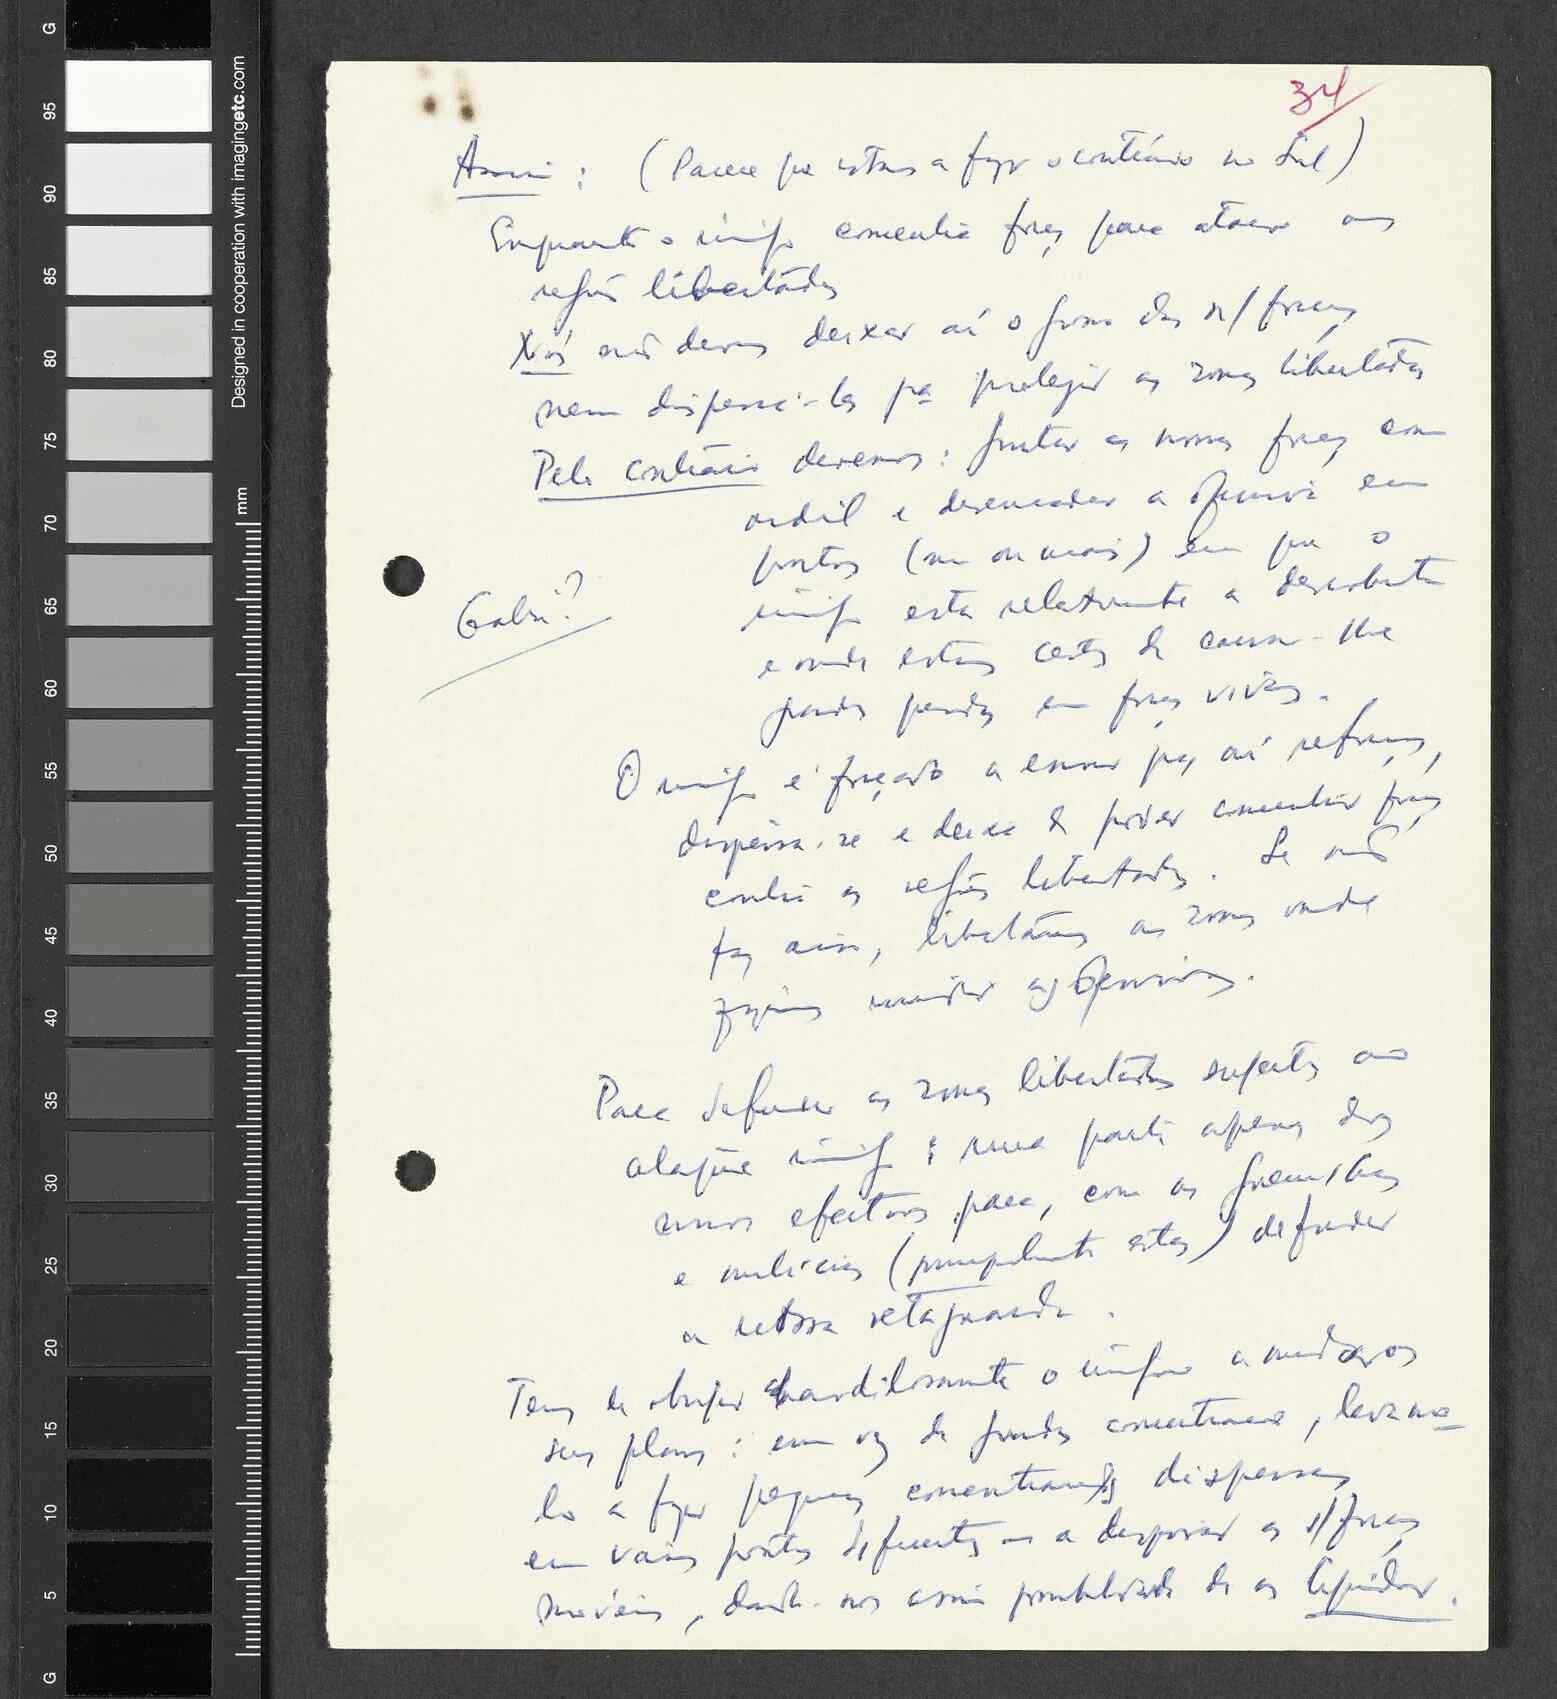 34
Assim : (Parece que estamos a fazer o contrário no Sul)
Enquanto o inimigo concentra forças para atacar as
regiões libertadas
Nós não devemos deixar aí o grosso das n/ forças
nem dispersá-las pa proteger as zonas libertadas
Pelo contrário devemos : juntar as nossas forças com
ardil e desencadear a ofensiva em
pontos (um ou mais) em que o
inimigo esta relativamente a descoberto
e onde estamos certos de causar-lhe
grandes perdas em forças vivas.
Gabú?
O inimigo é forçado a enviar para aí reforços,
dispersa-se e deixa de poder concentrar forças
contra as regiões libertadas. Se não
faz assim, libertamos as zonas onde
fizemos as ofensivas.
Para defender as zonas libertadas sujeitas ao
ataque inimigo : uma parte apenas dos
nossos efectivos para, com as guerrilhas
e milícias (principalmente estas) defender
a nossa retaguarda.
Temos de obrigar ardilosamente o inimigo a mudar os
seus planos : em vez de grandes concentrações, levamo-
lo a fazer pequenas concentrações dispersas
em vários pontos diferentes ou a dispersar as s/ forças
móveis, dando-nos assim possibilidade de as liquidar.
G
95
90
85
80
75
70
65
60
55
50
45
40
35
30
25
20
15
10
5
G
Designed in cooperation with imagingetc.com
mm